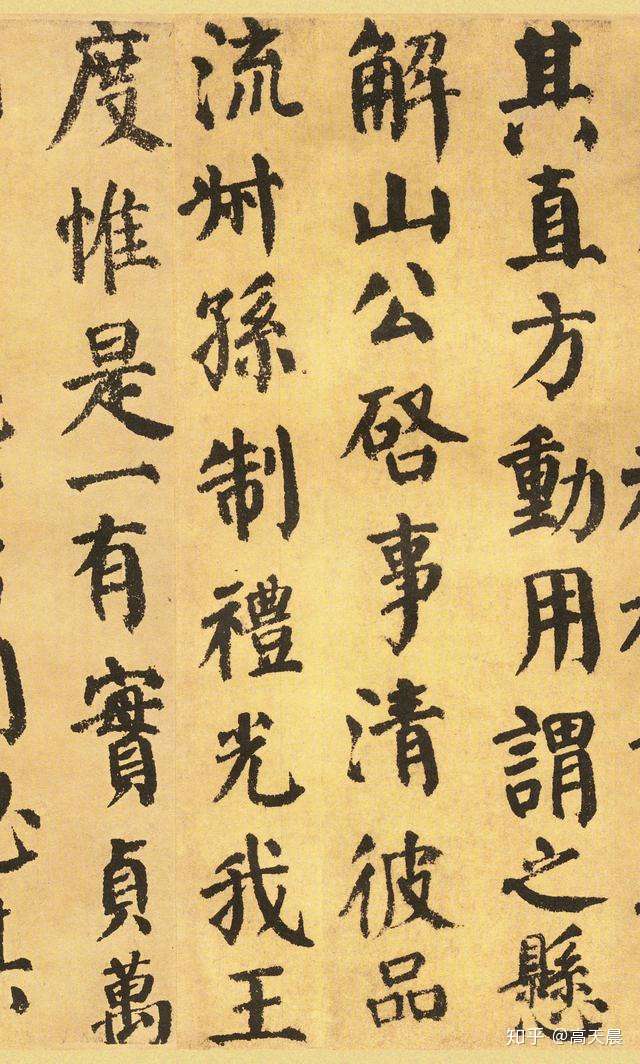 其直方動用謂之懸
解山公啓事清彼品
流叔孫制禮光我王
度惟是一有實貞萬
知乎 @高天晨